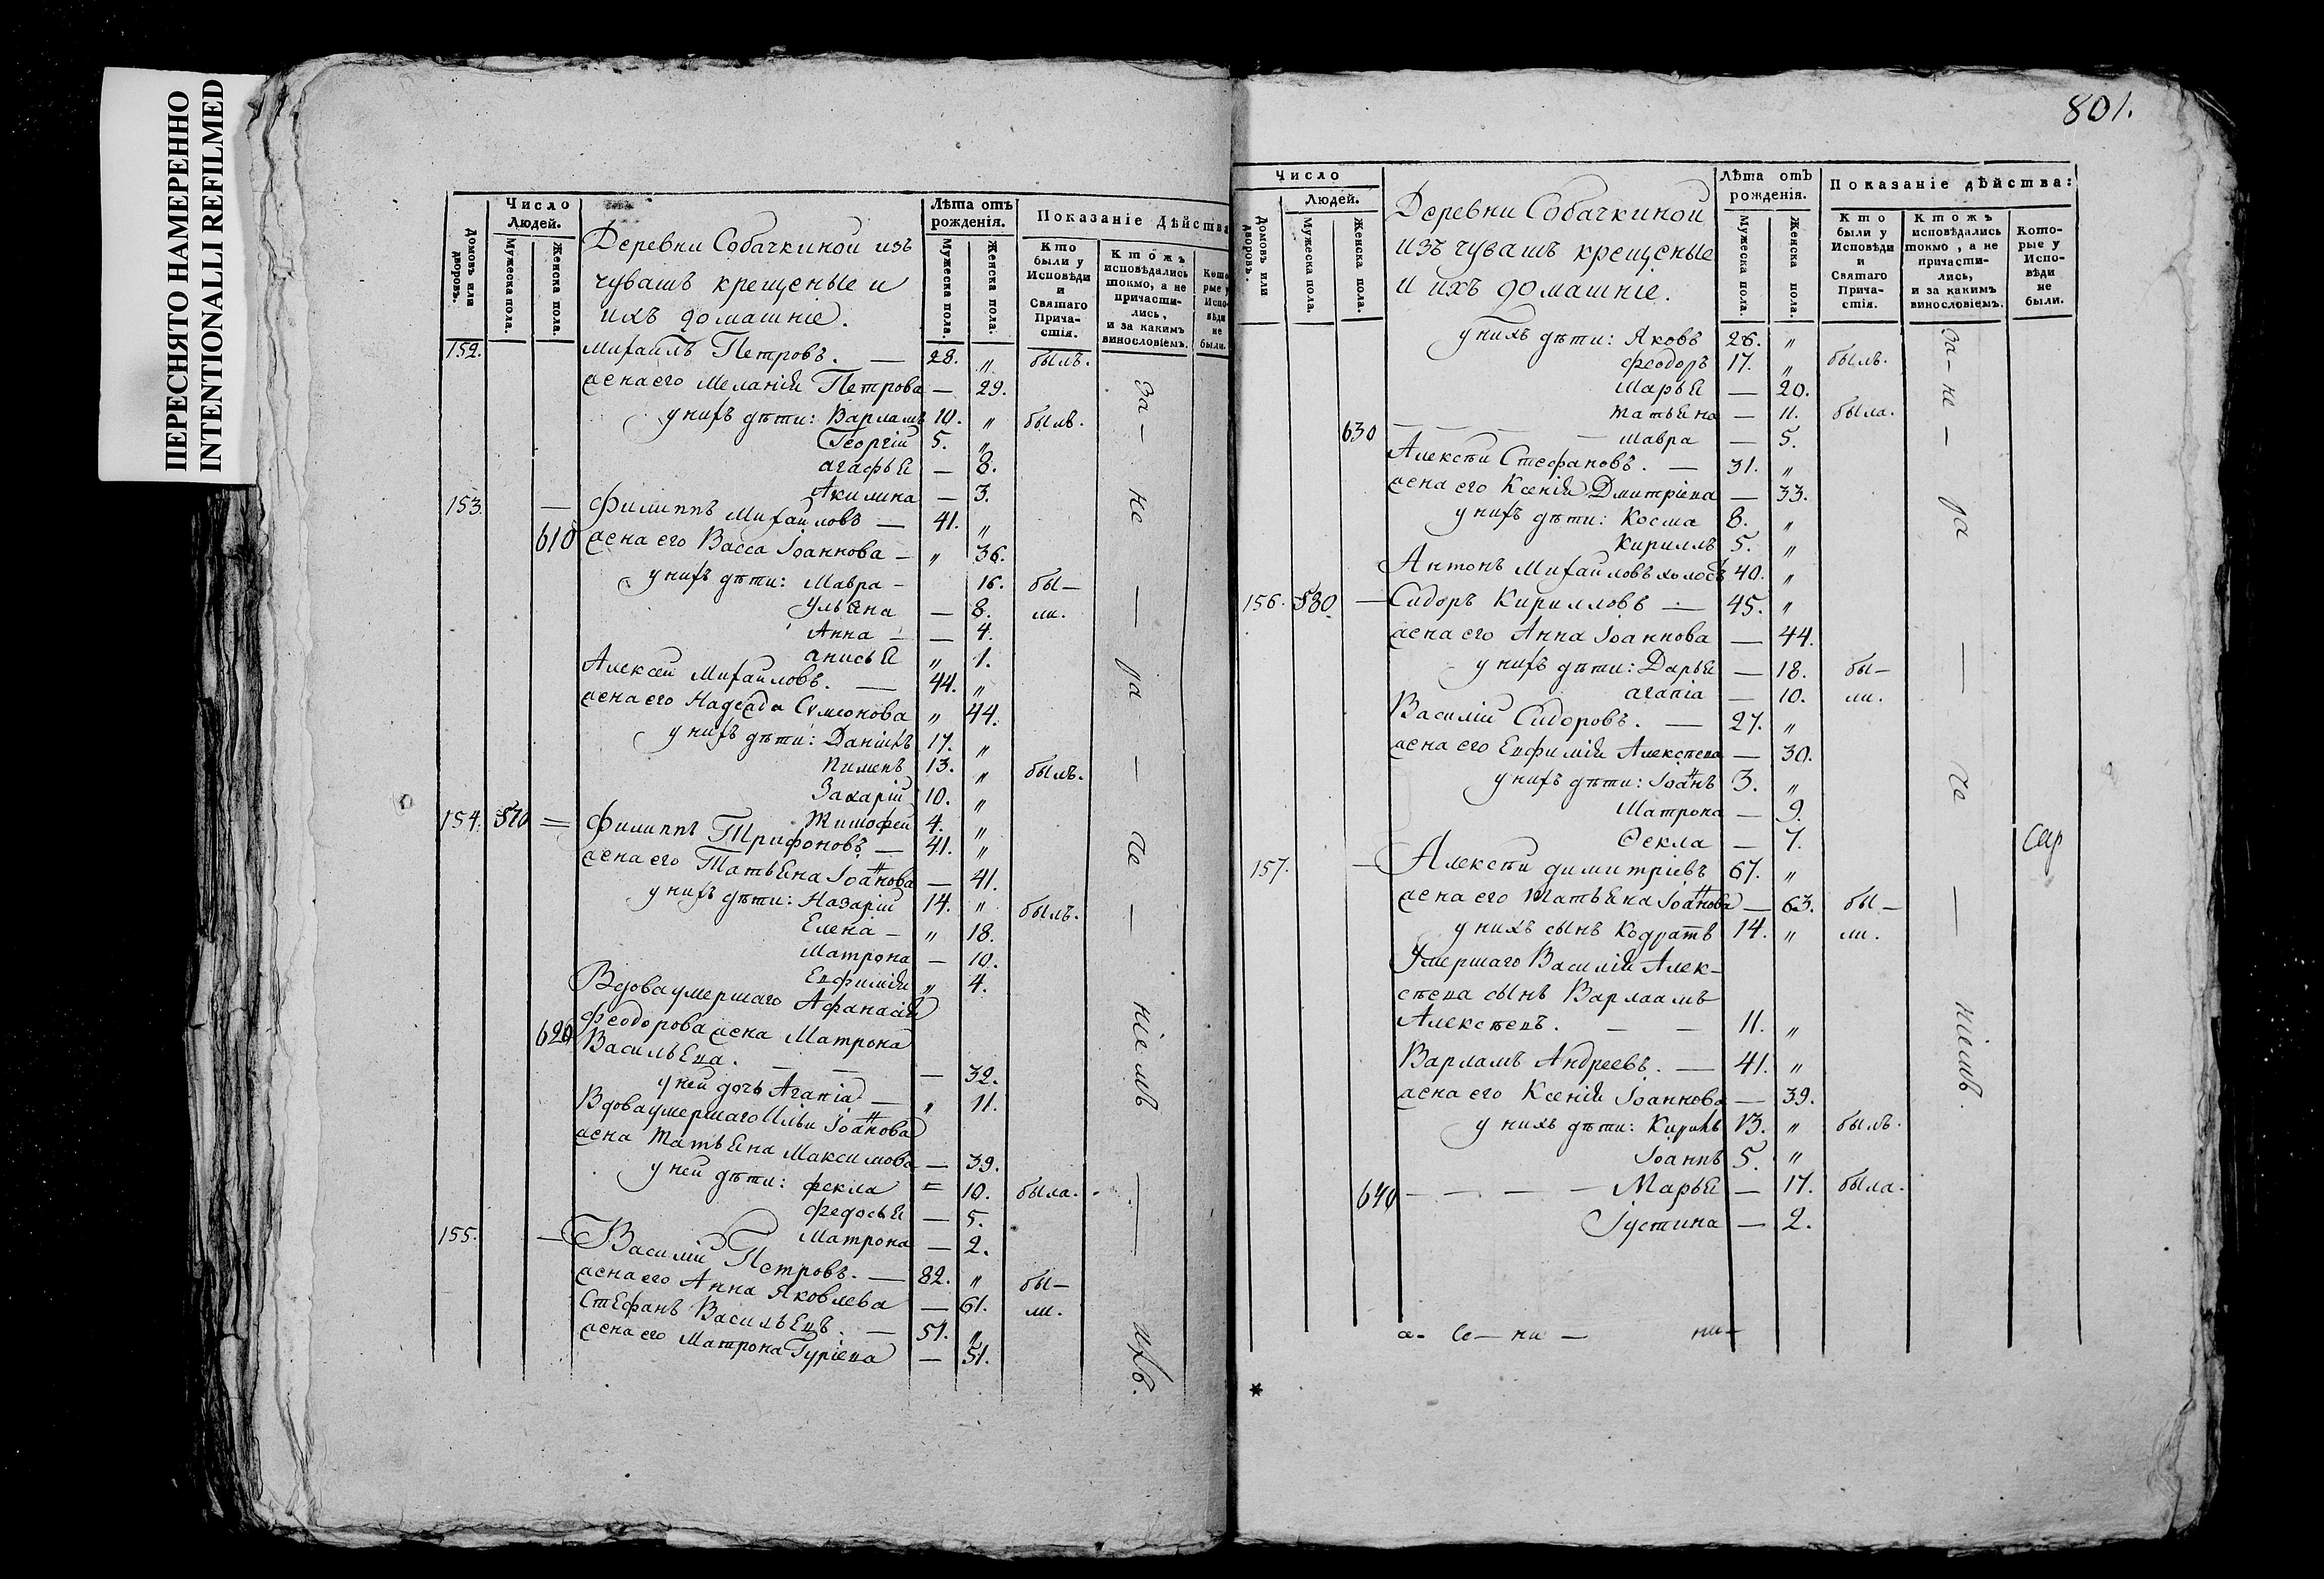 ПЕРЕСНЯТО НАМЕРЕННО
INTENTIONALLI REFILMED
Число
Людей.
Домовъ или дворовъ.
Мужеска пола.
Женска пола.
Деревни Собачкиной изъ
чувашъ крещеные и
ихъ домашніе.
Лѣта отъ
рожденія.
Мужеска пола
Женска пола:
Показаніе Дѣйства
Кто
были у
Исповѣди
и
Святаго
Прича-
стія.
Ктожъ
исповѣдались
токмо, а не
причасти-
лись,
и за какимъ
винословіемъ.
Кото
рые у
Испо-
вѣди
не
были.
152. Михаилъ Петровъ. — 28. „ былъ.
жена его Меланія Петрова — 29.
у нихъ дѣти: Варламъ 10. „ былъ.
Георгій 5. „
агафья — 8.
Акилина — 3.
153. — Филиппъ Михаиловъ — 41. „
610 жена его Васса Іоаннова — „ 36.
у нихъ дѣти: Мавра — 16. бы-
Ульяна — 8. ли.
Анна — — 4.
анисья „ 1.
Алексей Михаиловъ. — 44. „
жена его Надежда Сѵмеонова „ 44.
у нихъ дѣти: Даніилъ 17. „
Пименъ 13. „ былъ.
Захарій 10. „
Тимофей 4. „
154. 570 = Филиппъ Трифоновъ — 41. „
жена его Татьяна Іоанова — 41.
у нихъ дѣти: Назарій 14. „ былъ.
Елена — „ 18.
Матрона — 10.
Евфимія „ 4.
Вдова умершаго Афанасія
Феодорова жена Матрона
620 Васильева. — — — 32.
у ней дочь Агапіа — „ 11.
Вдова умершаго Ильи Іоанова
жена Татьяна Максимова — 39.
у ней дѣти: Фекла = 10. была.
Федосья — 5.
Матрона — 2.
155. — Василій Петровъ. — 82. „ бы-
жена его Анна Яковлева — 61. ли.
Стефанъ Васильевъ. — 51. „
жена его Матрона Гуріева — 51.
За — не — — ра — че — ніемъ — ихъ.
801.
Число
Людей.
Домовъ или дворовъ.
Мужеска пола.
Женска пола.
Деревни Собачкиной
изъ чувашъ крещеные
и ихъ домашніе.
Лѣта отъ
рожденія.
Мужеска пола.
Женска пола.
Показаніе дѣйства:
Кто
были у
Исповѣди
и
Святаго
Прича-
стія.
Ктожъ
исповѣдались
токмо, а не
причасти-
лись,
и за какимъ
винословіемъ.
Кото-
рые у
Испо-
вѣди
не
были.
у нихъ дѣти: Яковъ 26. „
Феодоръ 17. „ былъ.
Марья — 20.
Татьяна — 11. была.
630 — — — — Мавра — 5.
Алексѣй Стефановъ. — 31. „
жена его Ксенія Дмитріева — 33.
у нихъ дѣти: Косма 8. „
Кириллъ 5. „
Антонъ Михаиловъ холостъ 40. „
156. 580. — Сидоръ Кирилловъ — 45. „
жена его Анна Іоаннова — 44.
у нихъ дѣти: Дарья — 18. бы-
агапіа — 10. ли.
Василій Сидоровъ. — 27. „
жена его Евфимія Алексѣева — 30.
у нихъ дѣти: Іоанъ 3. „
Матрона — 9.
Ѳекла — 7.
157. — Алексѣй димитріевъ 67. „
жена его Татьяна Іоанова — 63. бы-
у нихъ сынъ Кодратъ 14. „ ли.
Умершаго Василія Алек-
сѣева сынъ Варлаамъ
Алексѣевъ. — — 11. „
Варламъ Андреевъ. — 41. „
жена его Ксенія Іоаннова — 39.
у нихъ дѣти: Кирилъ 13. „ былъ.
Іоаннъ 5. „
640 — — — — Марья — 17. была.
Іустина — 2.
За — не — ра — — че — ніемъ.
а- Се — ни — ни-